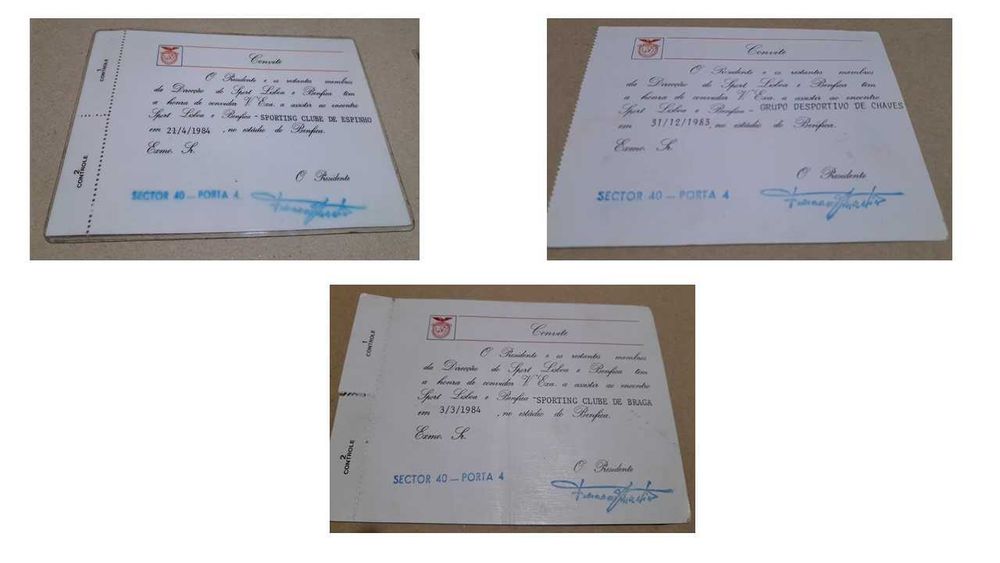 Convite
1
CONTROLE
O Presidente e os restantes membros
da Direcção do Sport Lisboa e Benfica tem
a honra de convidar V. Exa. a assistir ao encontro
Sport Lisboa e Benfica - SPORTING CLUBE DE ESPINHO
em 21/4/1984, no estádio do Benfica.
Exmo. Sr.
2
CONTROLE
O Presidente
SECTOR 40 — PORTA 4
Convite
O Presidente e os restantes membros
da Direcção do Sport Lisboa e Benfica tem
a honra de convidar V. Exa. a assistir ao encontro
Sport Lisboa e Benfica - GRUPO DESPORTIVO DE CHAVES
em 31/12/1983, no estádio do Benfica.
Exmo. Sr.
O Presidente
SECTOR 40 — PORTA 4
Convite
1
CONTROLE
O Presidente e os restantes membros
da Direcção do Sport Lisboa e Benfica tem
a honra de convidar V. Exa. a assistir ao encontro
Sport Lisboa e Benfica - SPORTING CLUBE DE BRAGA
em 3/3/1984, no estádio do Benfica.
Exmo. Sr.
2
CONTROLE
O Presidente
SECTOR 40 — PORTA 4